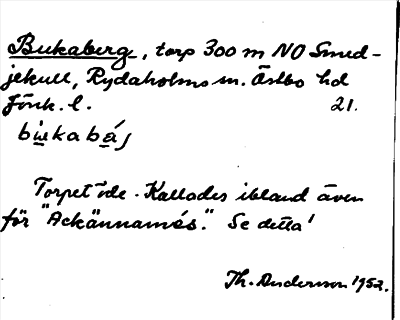 Bukaberg, torp 300 m NO Smed-
jekull, Rydaholms sn. Östbo hd
Jönk. l. 21.
bukabáj
Torpet öde. Kallades ibland även
för "Ackännamos." Se detta!
Th. Anderson 1952.